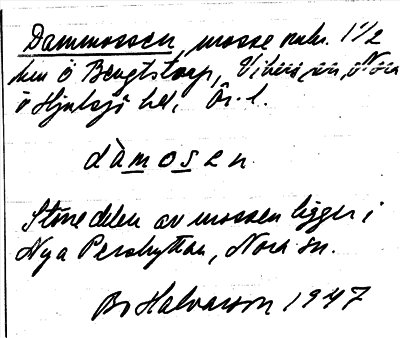 Dammossen, mosse nuv. 1 1/2
km ö Bengtstorp, Vikers sn, Nora
o Hjulsjö bl, Ör. l.
dàmosen
Större delen av mossen ligger i
Nya Pershyttan, Nora sn.
Bo Halvarson 1947